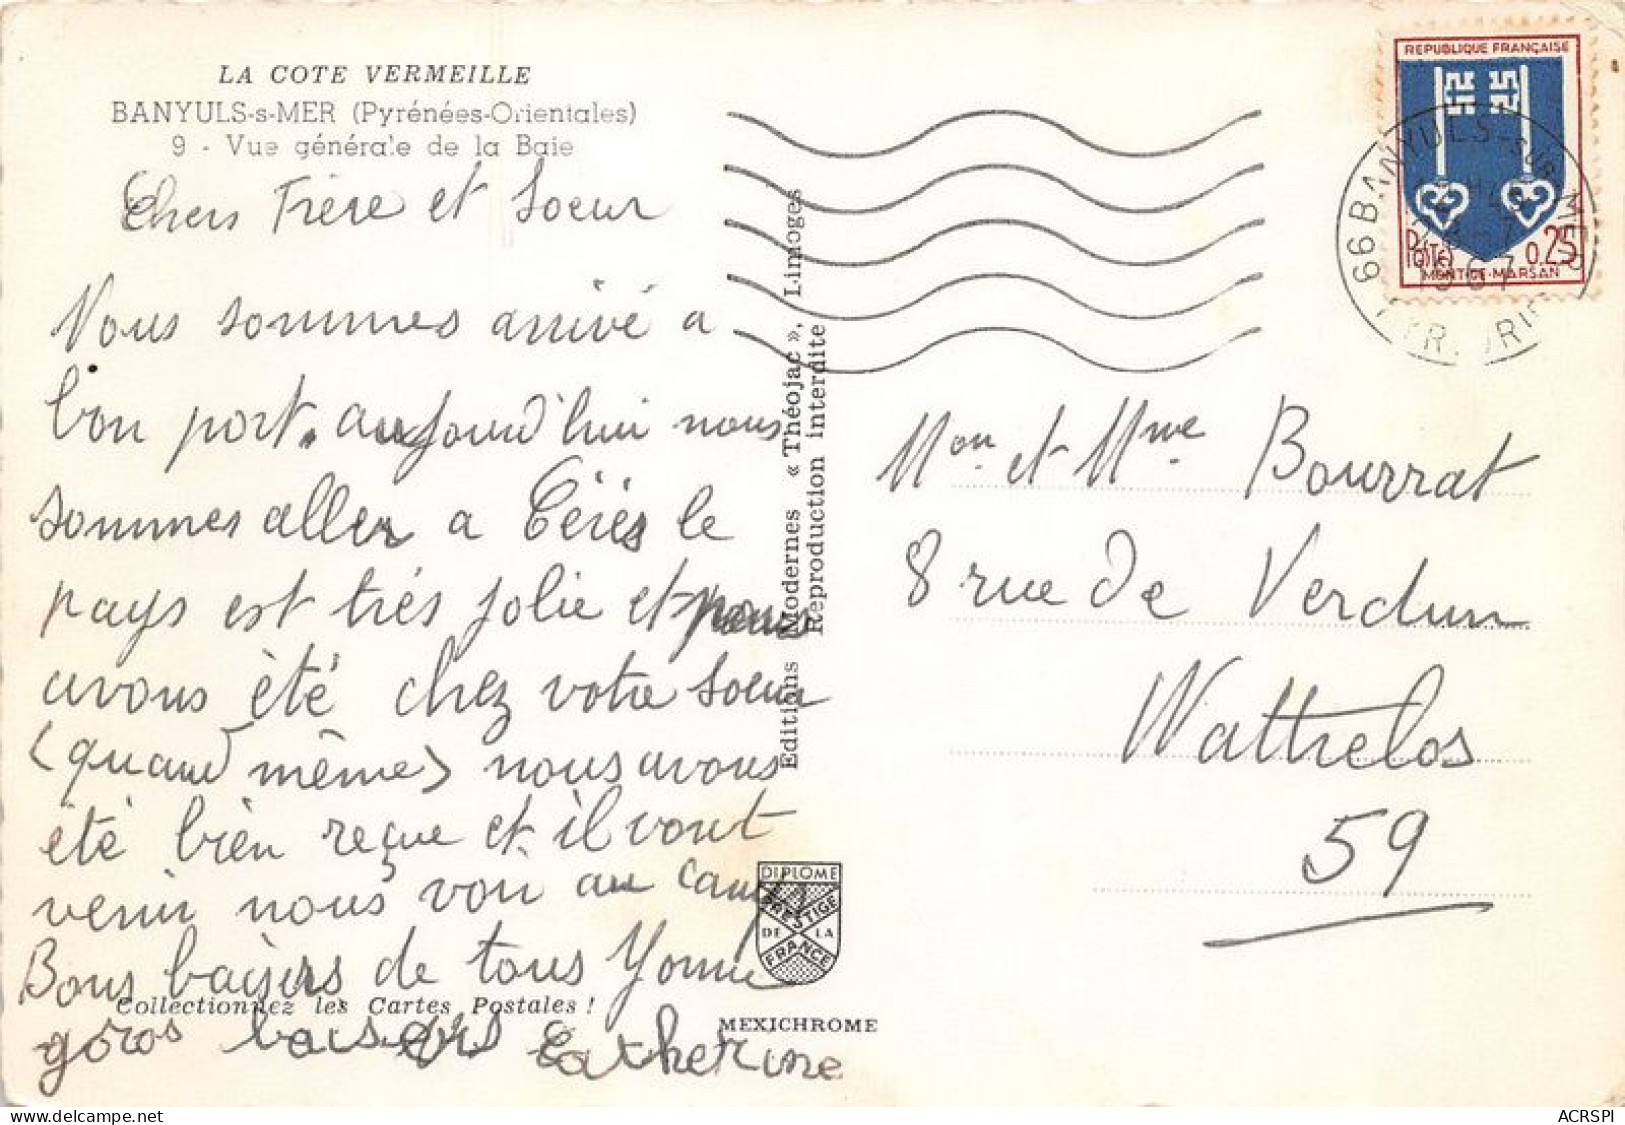 LA COTE VERMEILLE
BANYULS-s-MER (Pyrénées-Orientales)
9 - Vue générale de la Baie
Chers Frère et Soeur
Nous sommes arrivé a
bon port. aujourd'hui nous
sommes aller a Céres le
pays est trés jolie et nous
avons été chez votre soeur
(quand même) nous avons
été bien reçue et il vont
venir nous voir au camp
Bons baisers de tous Yonne
Collectionnez les Cartes Postales !
goros baisers Catherine
Editions Modernes « Théojac », Limoges
Reproduction interdite
DIPLOME
PRESTIGE
DE LA
FRANCE
MEXICHROME
REPUBLIQUE FRANÇAISE
Postes 0,25
MONT-DE-MARSAN
66 BANYULS-SUR-MER
1967
Mon et Mme Bourrat
8 rue de Verdun
Wattrelos
59
ACRSPI